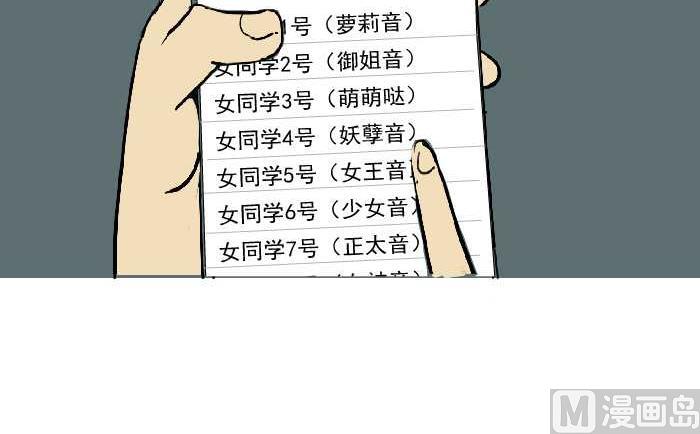 1号（萝莉音）
女同学2号（御姐音）
女同学3号（萌萌哒）
女同学4号（妖孽音）
女同学5号（女王音）
女同学6号（少女音）
女同学7号（正太音）
M 漫画岛